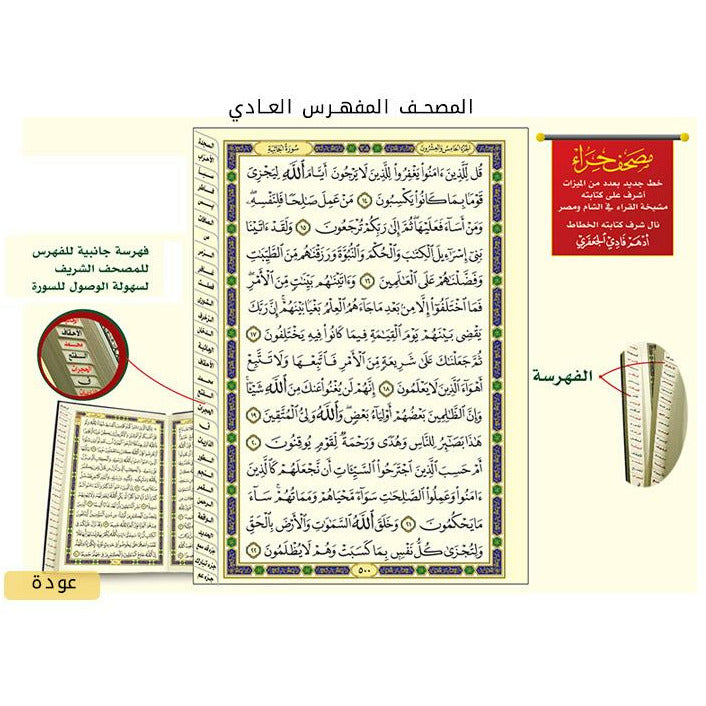 المصحف المفهرس العادي
مصحف حراء
خط جديد بعدد من الميزات
أشرف على كتابته
مشيخة القراء في الشام ومصر
نال شرف كتابته الخطاط
أدهم فادي الجعفري
الجزء الخامس والعشرون
٢٥
سورة الجاثية
قُل لِّلَّذِينَ ءَامَنُوا۟ يَغْفِرُوا۟ لِلَّذِينَ لَا يَرْجُونَ أَيَّامَ ٱللَّهِ لِيَجْزِىَ
قَوْمًۢا بِمَا كَانُوا۟ يَكْسِبُونَ ١٤ مَنْ عَمِلَ صَٰلِحًا فَلِنَفْسِهِۦ
وَمَنْ أَسَآءَ فَعَلَيْهَا ثُمَّ إِلَىٰ رَبِّكُمْ تُرْجَعُونَ ١٥ وَلَقَدْ ءَاتَيْنَا
بَنِىٓ إِسْرَٰٓءِيلَ ٱلْكِتَٰبَ وَٱلْحُكْمَ وَٱلنُّبُوَّةَ وَرَزَقْنَٰهُم مِّنَ ٱلطَّيِّبَٰتِ
وَفَضَّلْنَٰهُمْ عَلَى ٱلْعَٰلَمِينَ ١٦ وَءَاتَيْنَٰهُم بَيِّنَٰتٍ مِّنَ ٱلْأَمْرِ
فَمَا ٱخْتَلَفُوٓا۟ إِلَّا مِنۢ بَعْدِ مَا جَآءَهُمُ ٱلْعِلْمُ بَغْيًۢا بَيْنَهُمْ إِنَّ رَبَّكَ
يَقْضِى بَيْنَهُمْ يَوْمَ ٱلْقِيَٰمَةِ فِيمَا كَانُوا۟ فِيهِ يَخْتَلِفُونَ ١٧
ثُمَّ جَعَلْنَٰكَ عَلَىٰ شَرِيعَةٍ مِّنَ ٱلْأَمْرِ فَٱتَّبِعْهَا وَلَا تَتَّبِعْ
أَهْوَآءَ ٱلَّذِينَ لَا يَعْلَمُونَ ١٨ إِنَّهُمْ لَن يُغْنُوا۟ عَنكَ مِنَ ٱللَّهِ شَيْـًٔا
وَإِنَّ ٱلظَّٰلِمِينَ بَعْضُهُمْ أَوْلِيَآءُ بَعْضٍ وَٱللَّهُ وَلِىُّ ٱلْمُتَّقِينَ ١٩
هَٰذَا بَصَٰٓئِرُ لِلنَّاسِ وَهُدًى وَرَحْمَةٌ لِّقَوْمٍ يُوقِنُونَ ٢٠
أَمْ حَسِبَ ٱلَّذِينَ ٱجْتَرَحُوا۟ ٱلسَّيِّـَٔاتِ أَن نَّجْعَلَهُمْ كَٱلَّذِينَ
ءَامَنُوا۟ وَعَمِلُوا۟ ٱلصَّٰلِحَٰتِ سَوَآءً مَّحْيَاهُمْ وَمَمَاتُهُمْ سَآءَ
مَا يَحْكُمُونَ ٢١ وَخَلَقَ ٱللَّهُ ٱلسَّمَٰوَٰتِ وَٱلْأَرْضَ بِٱلْحَقِّ
وَلِتُجْزَىٰ كُلُّ نَفْسٍۭ بِمَا كَسَبَتْ وَهُمْ لَا يُظْلَمُونَ ٢٢
٥٠٠
السجدة
الأحزاب
سبأ
فاطر
يس
الصافات
ص
الزمر
غافر
فصلت
الشورى
الزخرف
الدخان
الجاثية
الأحقاف
محمد
الفتح
الحجرات
ق
الذاريات
الطور
النجم
القمر
الرحمن
الواقعة
الحديد
جزء قد سمع
جزء تبارك
جزء عم
فهرسة جانبية للفهرس
للمصحف الشريف
لسهولة الوصول للسورة
الأحقاف
محمد
الفتح
الحجرات
ق
الفهرسة
عودة